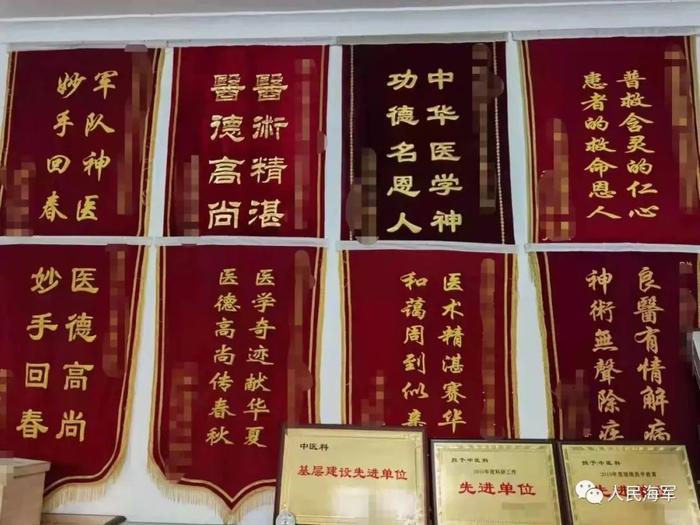 军队神医
妙手回春
醫術精湛
醫德高尚
中华医学神
功德名恩人
普救含灵的仁心
患者的救命恩人
医德高尚
妙手回春
医学奇迹献华夏
医德高尚传春秋
医术精湛赛华
和蔼周到似亲
良醫有情解病
神術無聲除
中医科
基层建设先进单位
授予中医科
年度科研工作
先进单位
授予中医科
人民海军